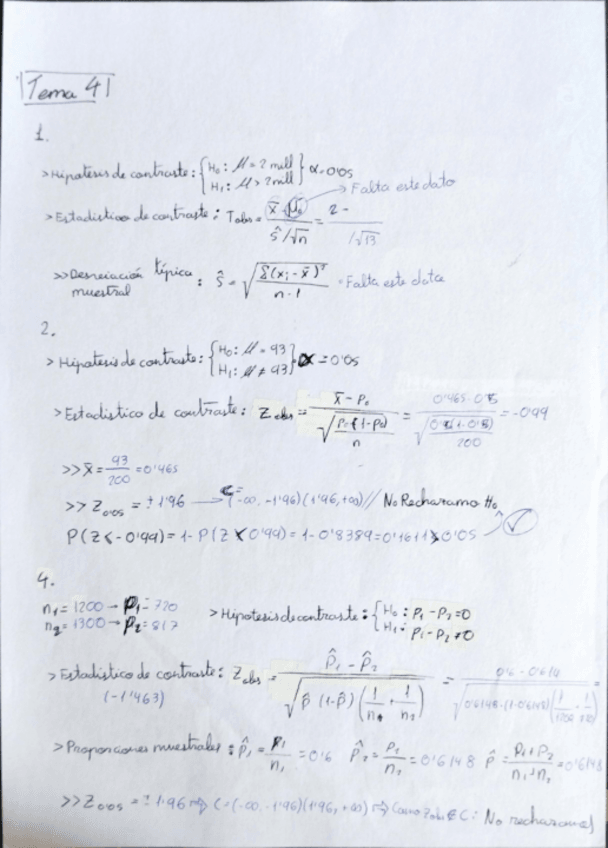 Tema 4
1.
> Hipótesis de contraste: { H₀: μ = 2 mill
H₁: μ > 2 mill } α = 0'05
> Estadístico de contraste: T obs = (x̄ - μ₀) / (ŝ/√n) = 2 - / /√13
> Falta este dato
>> Desviación típica muestral : ŝ = √(Σ(xᵢ - x̄)² / n-1) · Falta este dato
2.
> Hipótesis de contraste: { H₀: μ = 93
H₁: μ ≠ 93 } α = 0'05
> Estadístico de contraste: Z obs = (x̄ - p₀) / √(p₀(1-p₀) / n) = (0'465 - 0'5) / √(0'5(1-0'5) / 200) = -0'99
>> x̄ = 93/200 = 0'465
>> Z₀'₀₅ = ± 1'96 → C = (-∞, -1'96)(1'96, +∞) // No Rechazamo H₀
P(Z < -0'99) = 1 - P(Z < 0'99) = 1 - 0'8389 = 0'1611 > 0'05 ✓
4.
n₁ = 1200 → p₁ = 720
n₂ = 1300 → p₂ = 817
> Hipótesis de contraste: { H₀: p₁ - p₂ = 0
H₁: p₁ - p₂ ≠ 0
> Estadístico de contraste: Z obs = (p̂₁ - p̂₂) / √(p̂ (1-p̂) (1/n₁ + 1/n₂)) = (0'6 - 0'614) / =
(-1'463)
> Proporciones muestrales: p̂₁ = p₁/n₁ = 0'6 p̂₂ = p₂/n₂ = 0'6148 p̂ = (p₁+p₂)/(n₁+n₂) = 0'6148
>> Z₀'₀₅ = ± 1'96 ⇒ C = (-∞, -1'96)(1'96, +∞) ⇒ Como Z obs ∉ C : No rechazamos